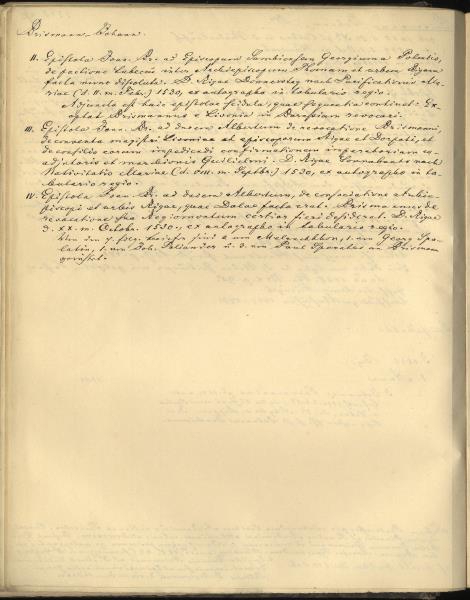 Brismann, Johann.
II. Epistola Joan. Br. ad Episcopum Sambiensem Georgium Polentis,
de pactione Lubecae inter Archiepiscopum Thomam et urbem Rigam
facta nuper dissoluta. D. Rigae Donnerstag nach Purificationis Ma-
riae (d. II. m. Febr.) 1530, ex autographo in tabulario regio.
Adjuncta est huic epistolae scidula, quae sequentia continet: Ex-
optat Brismannus e Livonia in Borussiam revocari.
III. Epistola Joan. Br. ad ducem Albertum de revocatione Brismanni,
de magistri Livoniae et episcoporum Rigae et Dorpati, et
de consilio eorum impediendi confirmationem imperatoriam co-
adjutoris et marchionis Guilielmi. D. Rigae Sonnabents nach
Nativitatis Mariae (d. m. Septbr.) 1530, ex autographo in ta-
bulario regio.
IV. Epistola Joan. Br. ad ducem Albertum, de consociatione archiepi-
scopi et urbis Rigae, quae Dalae facta erat. Brismannus de
revocatione sua Regiomontum certior fieri desiderat. D. Rigae
d. XX. m. Octobr. 1530, ex autographo in tabulario regio.
von Melanchthon, 1. von Georg Spa-
latin, 1. von Joh. u. d. von Paul Speratus an Brismann